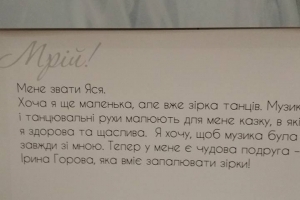 Мрій!
Мене звати Яся.
Хоча я ще маленька, але вже зірка танців. Музик
і танцювальні рухи малюють для мене казку, в які
я здорова та щаслива. Я хочу, щоб музика була
завжди зі мною. Тепер у мене є чудова подруга –
Ірина Горова, яка вміє запалювати зірки!